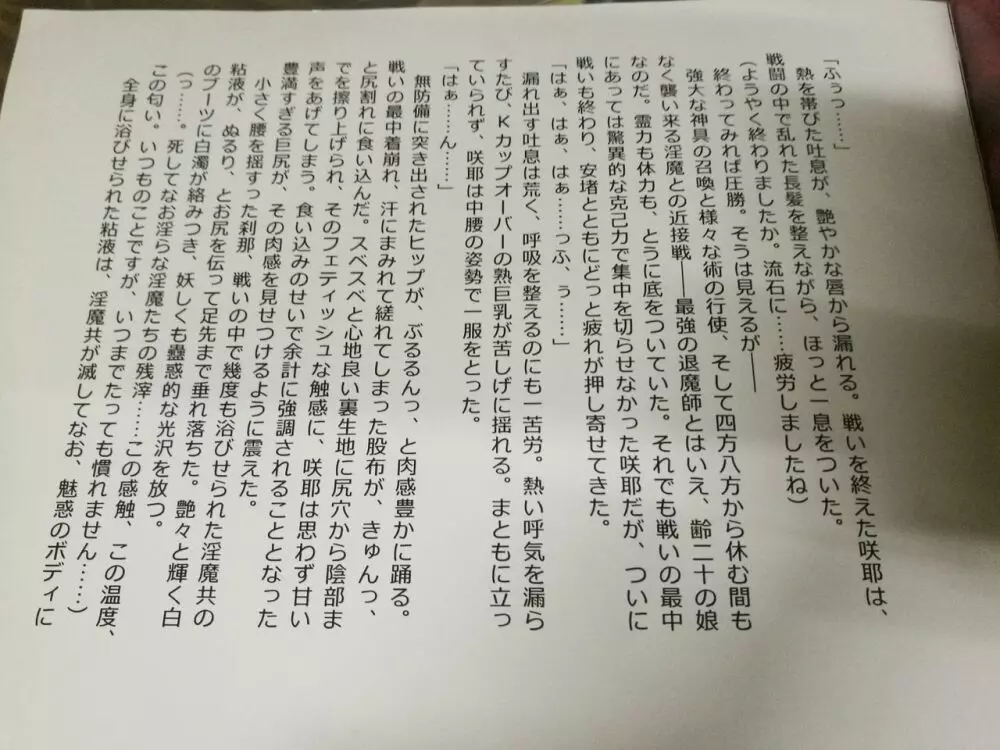 「ふぅっ……」
熱を帯びた吐息が、艶やかな唇から漏れる。戦いを終えた咲耶は、
戦闘の中で乱れた長髪を整えながら、ほっと一息をついた。
(ようやく終わりましたか。流石に……疲労しましたね)
終わってみれば圧勝。そうは見えるが――
強大な神具の召喚と様々な術の行使、そして四方八方から休む間も
なく襲い来る淫魔との近接戦――最強の退魔師とはいえ、齢二十の娘
なのだ。霊力も体力も、とうに底をついていた。それでも戦いの最中
にあっては驚異的な克己力で集中を切らせなかった咲耶だが、ついに
戦いも終わり、安堵とともにどっと疲れが押し寄せてきた。
「はぁ、はぁ、はぁ……っふ、ぅ……」
漏れ出す吐息は荒く、呼吸を整えるのにも一苦労。熱い呼気を漏ら
すたび、Kカップオーバーの熟巨乳が苦しげに揺れる。まともに立っ
ていられず、咲耶は中腰の姿勢で一服をとった。
「はぁ……ん……」
無防備に突き出されたヒップが、ぶるるんっ、と肉感豊かに踊る。
戦いの最中着崩れ、汗にまみれて縒れてしまった股布が、きゅんっ、
と尻割れに食い込んだ。スベスベと心地良い裏生地に尻穴から陰部ま
でを擦り上げられ、そのフェティッシュな触感に、咲耶は思わず甘い
声をあげてしまう。食い込みのせいで余計に強調されることとなった
豊満すぎる巨尻が、その肉感を見せつけるように震えた。
小さく腰を揺すった刹那、戦いの中で幾度も浴びせられた淫魔共の
粘液が、ぬるり、とお尻を伝って足先まで垂れ落ちた。艶々と輝く白
のブーツに白濁が絡みつき、妖しくも蠱惑的な光沢を放つ。
(っ……。死してなお淫らな淫魔たちの残滓……この感触、この温度、
この匂い。いつものことですが、いつまでたっても慣れません……)
全身に浴びせられた粘液は、淫魔共が滅してなお、魅惑のボディに